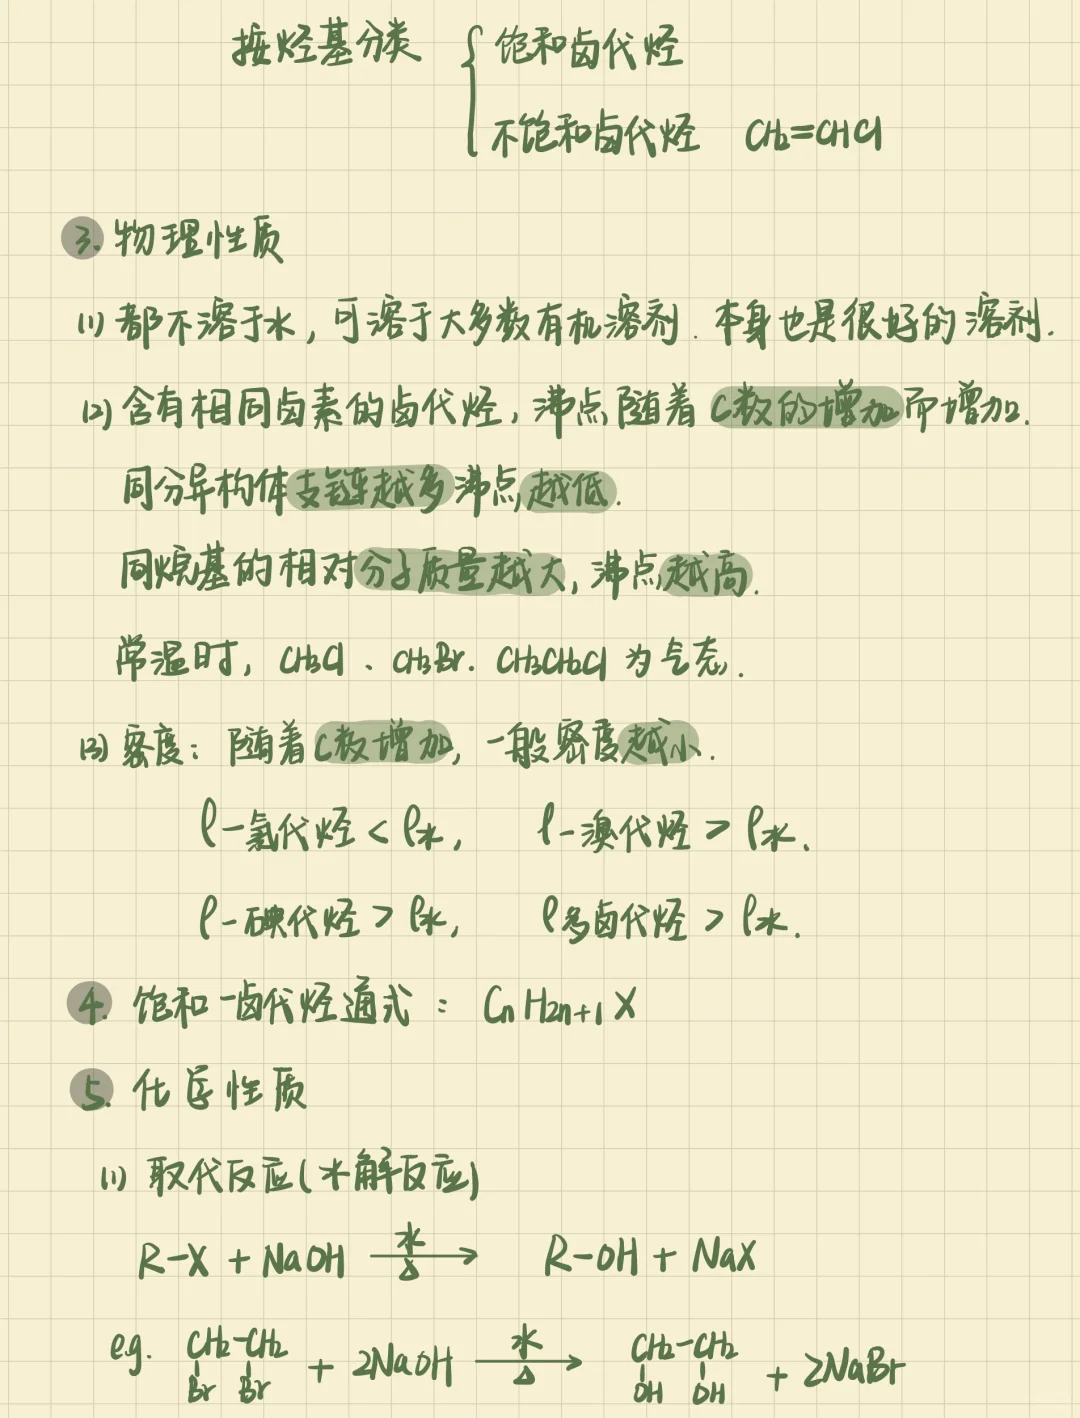 按烃基分类 { 饱和卤代烃
不饱和卤代烃 CH₂=CHCl
3. 物理性质
(1) 都不溶于水,可溶于大多数有机溶剂.本身也是很好的溶剂.
(2) 含有相同卤素的卤代烃,沸点随着C数的增加而增加.
同分异构体支链越多沸点越低.
同烷基的相对分子质量越大,沸点越高.
常温时,CH₃Cl、CH₃Br.CH₃CH₂Cl为气态.
(3) 密度:随着C数增加,一般密度越小.
ρ一氯代烃<ρ水, ρ一溴代烃>ρ水.
ρ一碘代烃>ρ水, ρ多卤代烃>ρ水.
4. 饱和一卤代烃通式:CnH2n+1X
5. 化学性质
(1) 取代反应(水解反应)
R-X + NaOH 水/△→ R-OH + NaX
e.g. CH₂-CH₂ + 2NaOH 水/△→ CH₂-CH₂ + 2NaBr
Br Br OH OH